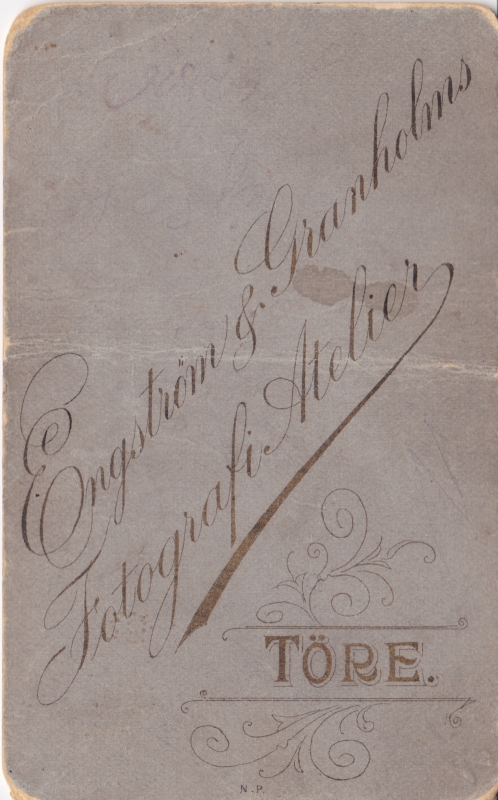 Engström & Granholms
Fotografi Atelier
TÖRE.
N.P.